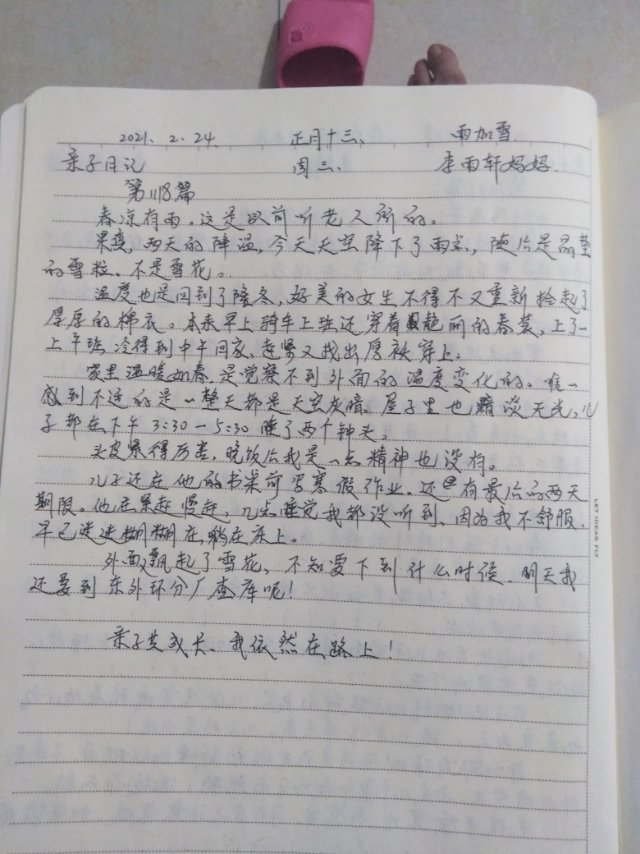 2021. 2. 24 正月十三、 雨加雪
亲子日记 周三、 李雨轩妈妈.
第1118篇
春凉有雨。这是以前听老人所的。
果然，两天的降温，今天天空降下了雨水，随后是晶莹
的雪粒。不是雪花。
温度也是回到了隆冬，好美的女生不得不又重新捡起了
厚厚的棉衣。本来早上骑车上班还穿着靓丽的春装，上了一
上午班冷得到中午回家，赶紧又找出厚袄穿上。
家里温暖如春，是觉察不到外面的温度变化的。唯一
感到不适的是一整天都是天空灰暗。屋子里也黯淡无光，儿
子都在下午3:30—5:30睡了两个钟头。
头皮紧得厉害，晚饭后我是一点精神也没有。
儿子还在他的书桌前写寒假作业。还有最后的两天
期限。他在紧赶慢赶，几点睡觉我都没听到、因为我不舒服，
早已迷迷糊糊在躺在床上。
外面飘起了雪花，不知要下到什么时候、明天我
还要到东外环分厂查库呢！
亲子共成长、我依然在路上！
LET IDEAS FLY